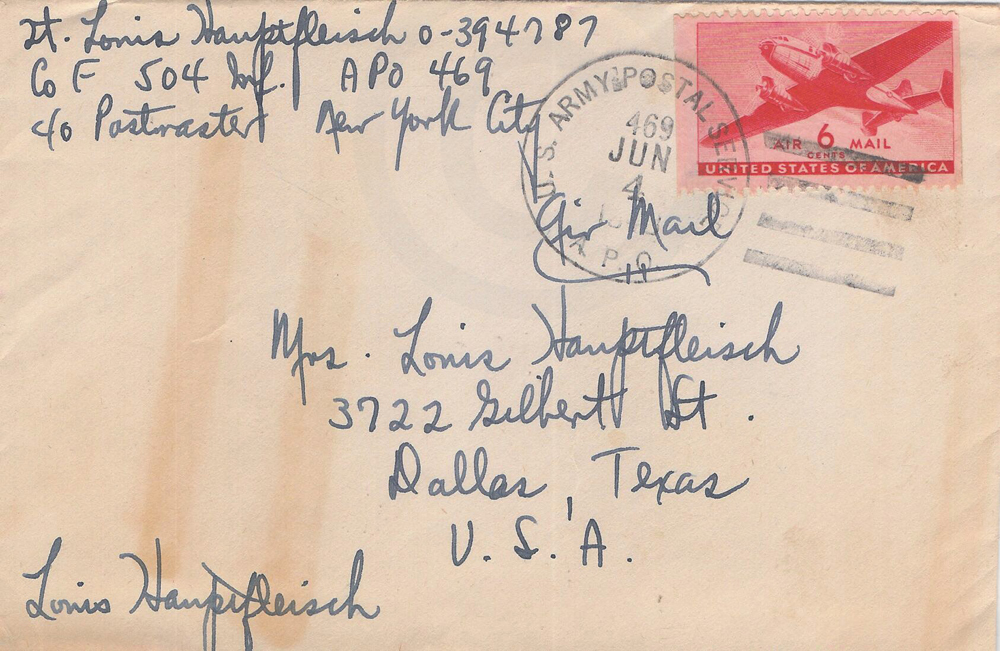 Lt. Louis Hauptfleisch O-394787
Co F 504 Inf. APO 469
c/o Postmaster New York City
U.S. ARMY POSTAL SERVICE
469
JUN
4
A.P.O.
AIR 6 MAIL
CENTS
UNITED STATES OF AMERICA
Air Mail
Mrs. Louis Hauptfleisch
3722 Gilbert St.
Dallas, Texas
U.S.A.
Louis Hauptfleisch